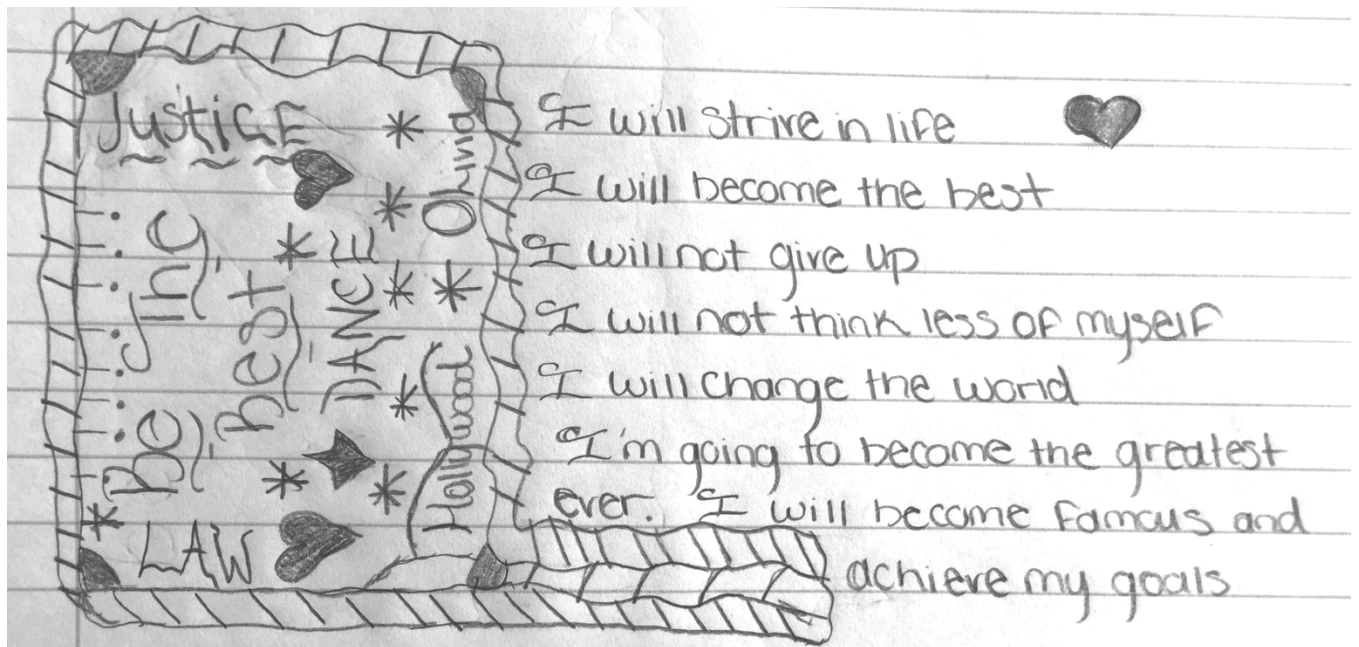 JUSTiCE
Olivia
Be The
best
DANCE
Hollywood
LAW
I will strive in life
I will become the best
I will not give up
I will not think less of myself
I will change the world
I'm going to become the greatest
ever. I will become famous and
achieve my goals